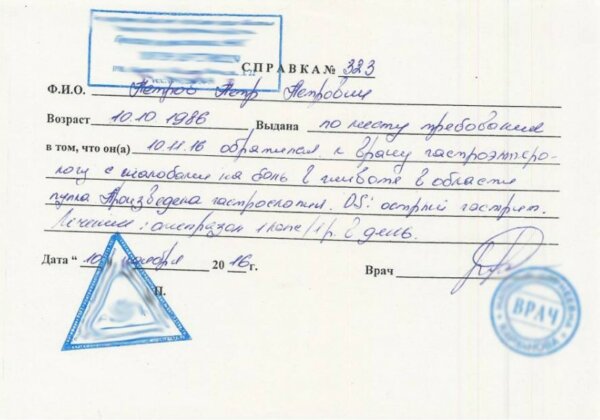 СПРАВКА № 323
Ф.И.О. Петров Петр Петрович
Возраст 10.10 1986 Выдана по месту требования
в том, что он(а) 10.11.16 обратился к врачу гастроэнтеро-
логу с жалобами на боль в животе в области
пупка Произведена гастроскопия. DS: острый гастрит.
Лечение: омепразол 1 капс/1 р. в день.
Дата " 10 ноября 20 16 г. Врач
П.
ВРАЧ